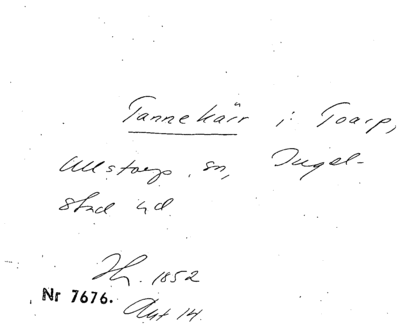 Tannekärr i: Toarp,
Ullstorps sn, Ingel-
stad hd
Th. 1852
Nr 7676.
Akt 14.